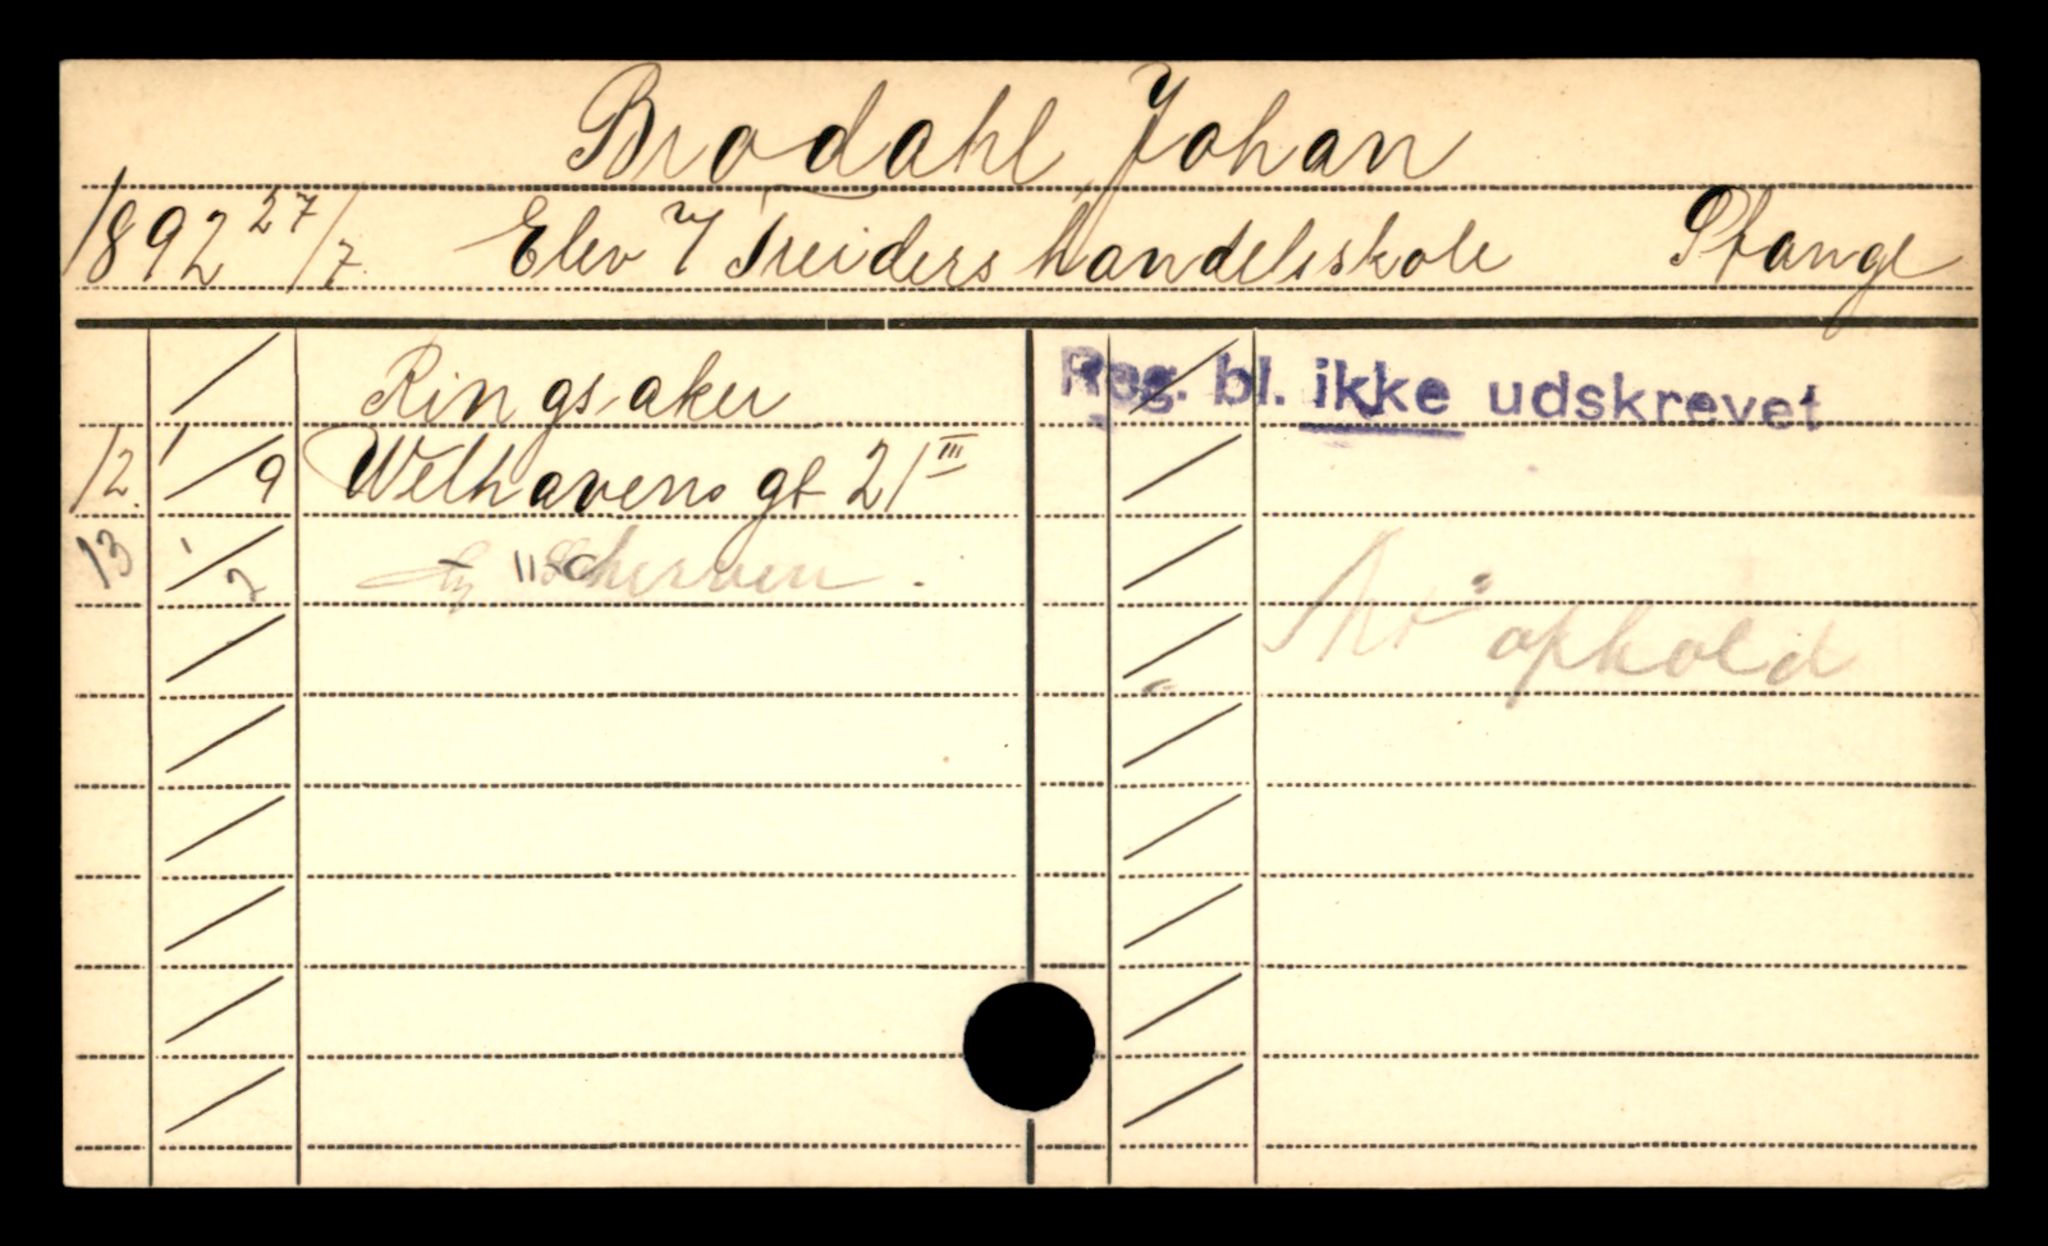 Brodahl, Johan
1892 27/7 Elev v/ Treiders handelsskole Stange
Ringsaker
12. 1/9 Welhavens gt 21 III
13 1/2
Reg. bl. ikke udskrevet
ophold